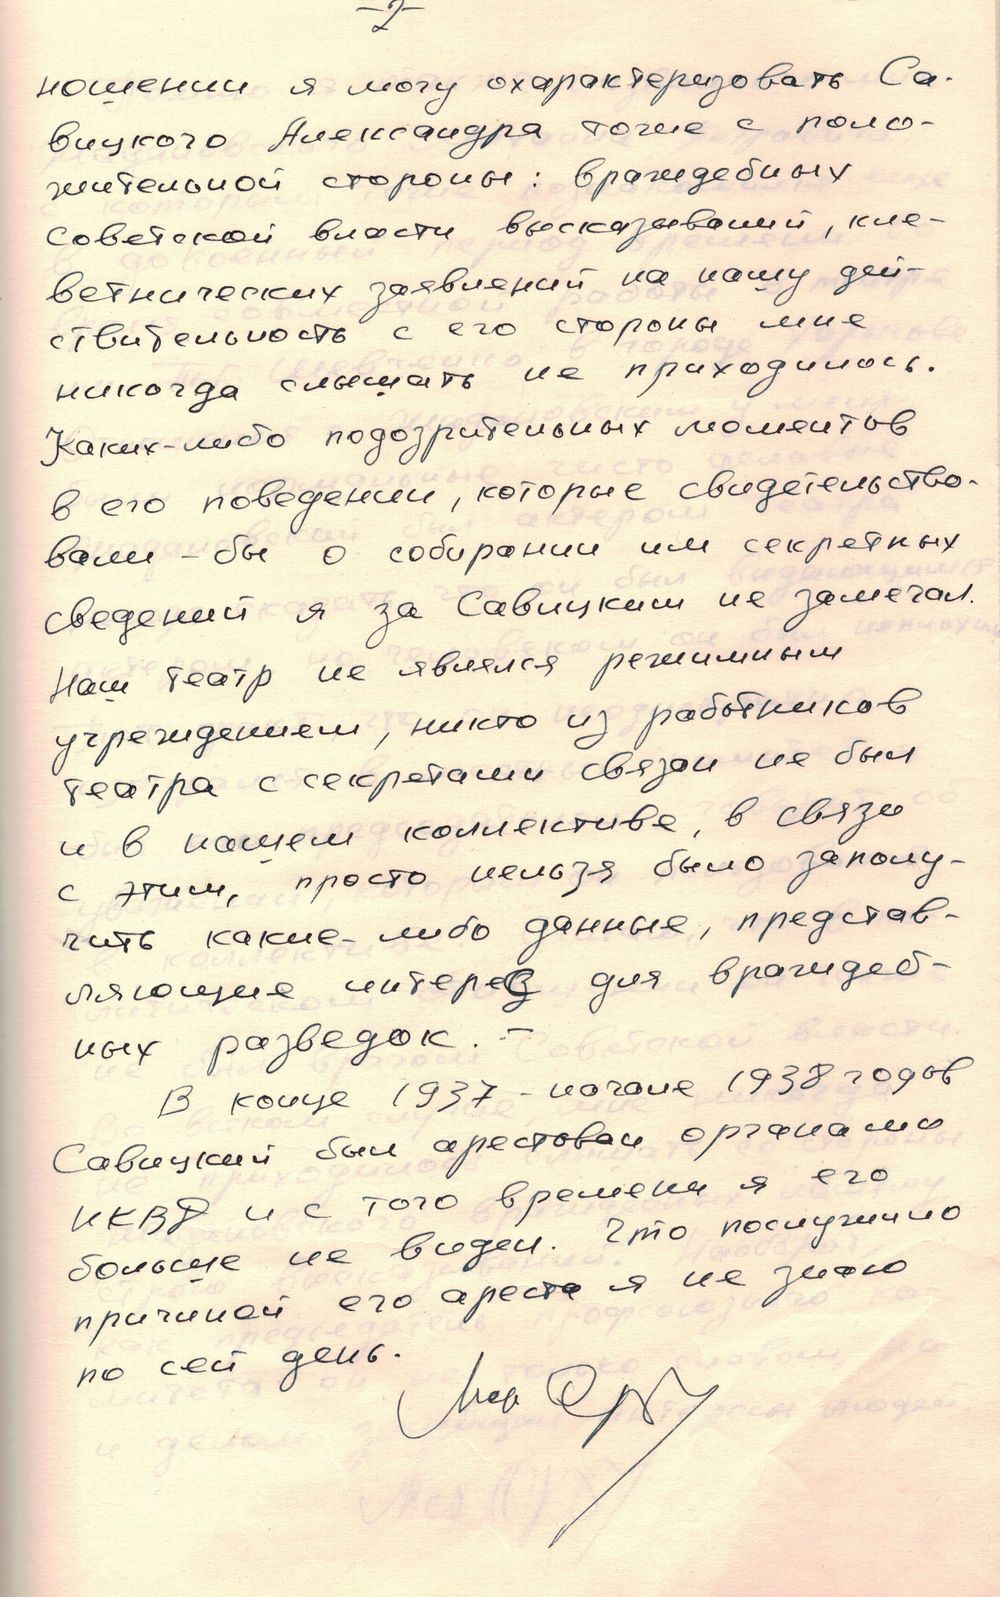 -2-
ношении я могу охарактеризовать Са-
вицкого Александра тоже с поло-
жительной стороны: враждебных
советской власти высказываний, кле-
ветнических заявлений на нашу дей-
ствительность с его стороны мне
никогда слышать не приходилось.
Каких-либо подозрительных моментов
в его поведении, которые свидетельство-
вали-бы о собирании им секретных
сведений я за Савицким не замечал.
Наш театр не являлся режимным
учреждением, никто из работников
театра с секретами связан не был
и в нашем коллективе, в связи
с этим, просто нельзя было заполу-
чить какие-либо данные, представ-
ляющие интерес для враждеб-
ных разведок. -
В конце 1937 - начале 1938 годов
Савицкий был арестован органами
НКВД и с того времени я его
больше не видел. Что послужило
причиной его ареста я не знаю
по сей день.